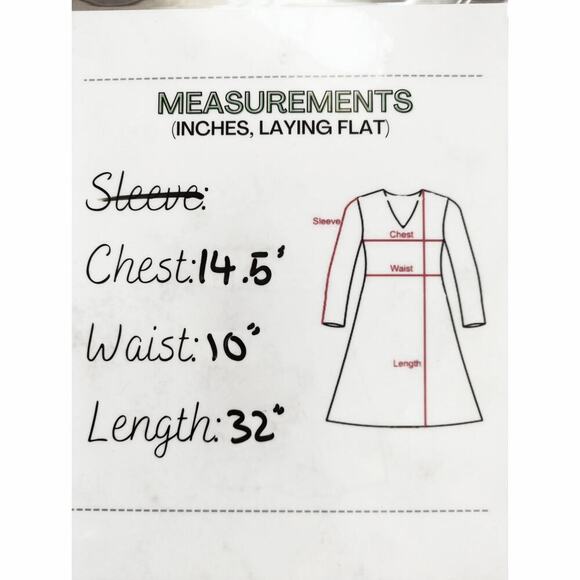 MEASUREMENTS
(INCHES, LAYING FLAT)
Sleeve:
Chest: 14.5"
Waist: 10"
Length: 32"
Sleeve
Chest
Waist
Length